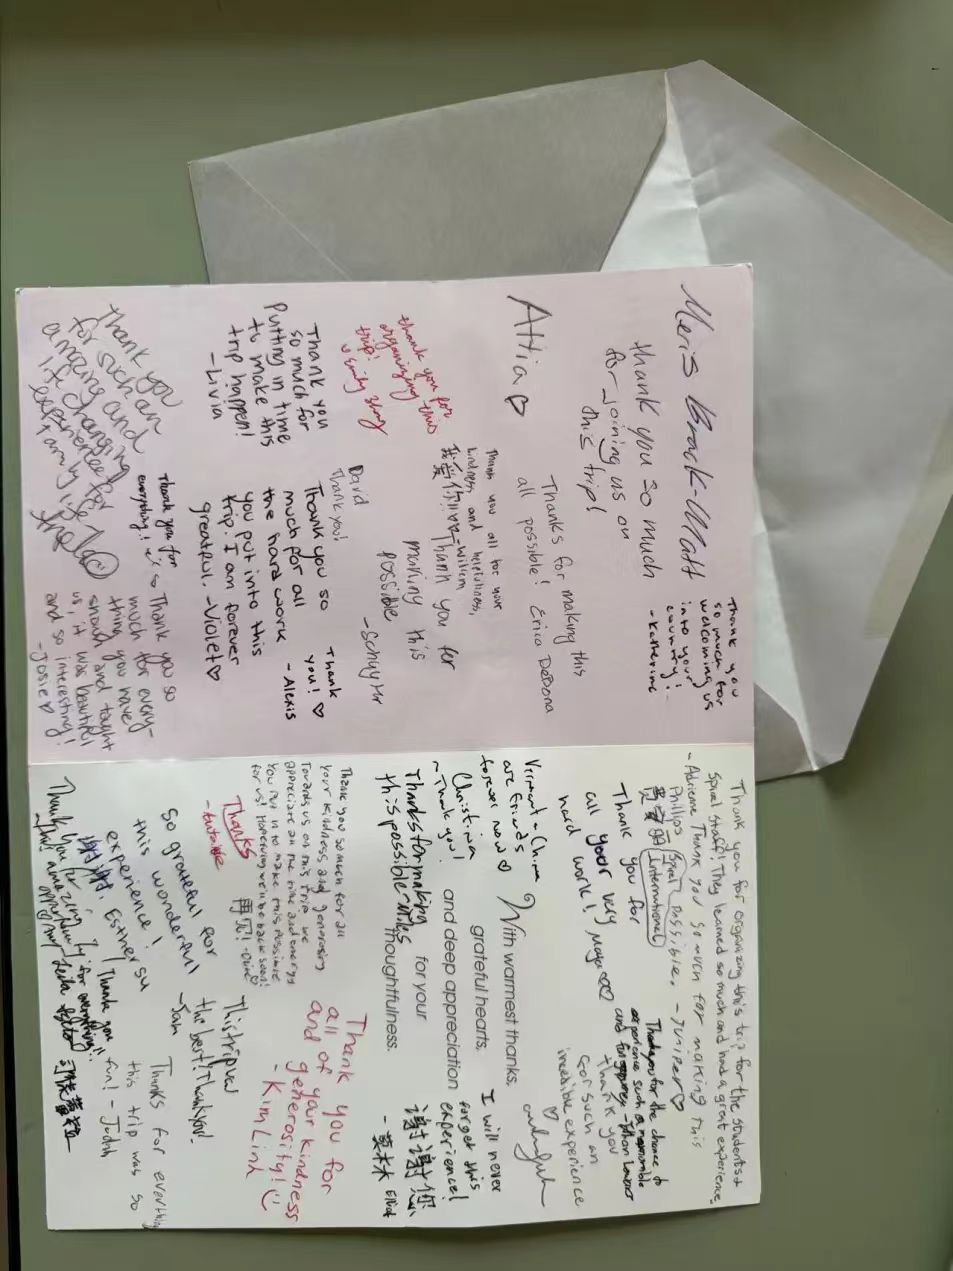 Meris Brack-Matt
thank you so much
for joining us on
this trip!
Thank you
so much for
welcoming us
into your
country!
- Katherine
Attia
Thanks for making this
all possible! Erica DeBona
thank you for
organizing this
trip!
Thank you all for your
kindness and helpfulness,
我爱你!!
- Willem
Thank you for
making this
possible
- Schuyler
David
Thank you!
Thank you
so much for
putting in time
to make this
trip happen!
- Livia
Thank you so
much for all
the hard work
you put into this
trip. I am forever
greatful. - Violet
Thank
you!
- Alexis
Thank you
for such an
amazing and
life changing
experience for
family
Thank you for
everything!
Thank you so
much for every-
thing you have
should and taught
us, it was beautiful
and so interesting!
- Josie
Thank you for organizing this trip for the students &
Spiral staff! They learned so much and had a great experience.
- Adrienne
Phillips
Spiral
International
Thank you so much for making this
possible. - Juniper
Thank you for
all your very
hard work! Maya
Thank you for the chance to
experience such a memorable
Thank you
for such an
incredible experience
Vermont & China
are friends
forever now
With warmest thanks,
grateful hearts,
and deep appreciation
for your
thoughtfulness.
Christina
~ Thank you!
Thanks for making
this possible - Miles
I will never
forget this
experience!
谢谢您
Thank you so much for all
your kindness and generosity
Towards us on this trip we
appreciate all the time and energy
You put in to make this possible
for us! Hopefully we'll be back soon!
再见!
Thanks
Thank you for
all of your kindness
and generosity!
- Kim Link
So grateful for
this wonderful
experience!
- Jan
This trip was
the best! Thank you!
谢谢, Esther Su
Thank you
for everything!!
Thanks for everything
this trip was so
fun! - Judith
Thank you for
this amazing
opportunity